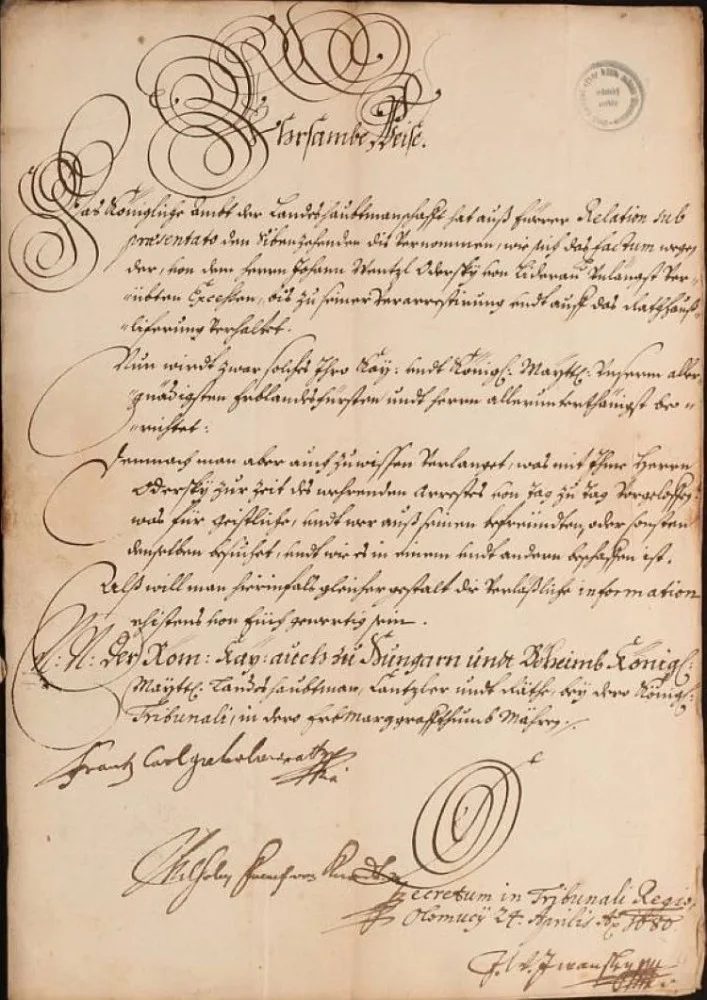 Ehrsambe Weise.
Das Königliche Ambt der Landeshaubtmanschafft hat auß Eürer Relation sub
præsentato den Sibenzehenden dis Vernommen, wie sich das factum wegen
der, von dem Herrn Johann Wentzl Odersky von Liderau Unlängst Ver-
übten Excessen, bis zu seiner Verarrestirung undt auff das Rathhauß
lifferung Verhaltet.
Nun wirdt zwar solches Ihro Kay: undt Königl: Maytt: Unserm aller
gnädigsten Erblandesfürsten undt Herrn allerunterthänigst be-
richtet:
Demnach man aber auch zuwissen Verlanget, was mit Ihme Herrn
Odersky zur Zeit des wehrenden Arrestes von Tag zu Tag Vorgeloffen,
was für geistliche, undt wer auß seinen befreündten, oder sonsten
denselben besuchet, undt wie es in einem undt andern beschaffen ist.
Alß will man hierinfalls gleicher gestalt die Verläßliche information
ehistens von Eüch gewertig sein.
N: N: Der Röm: Kay: auch zu Hungarn undt Böheimb Königl:
Maytt: Landeshaubtman, Cantzler undt Räthe, bey dero Königl:
Tribunali, in dero Erbmarggraffthumb Mähren.
Frantz Carl
Wilhelm von
Decretum in Tribunali Regio,
Olomucÿ 24. Aprilis Ao 1680.